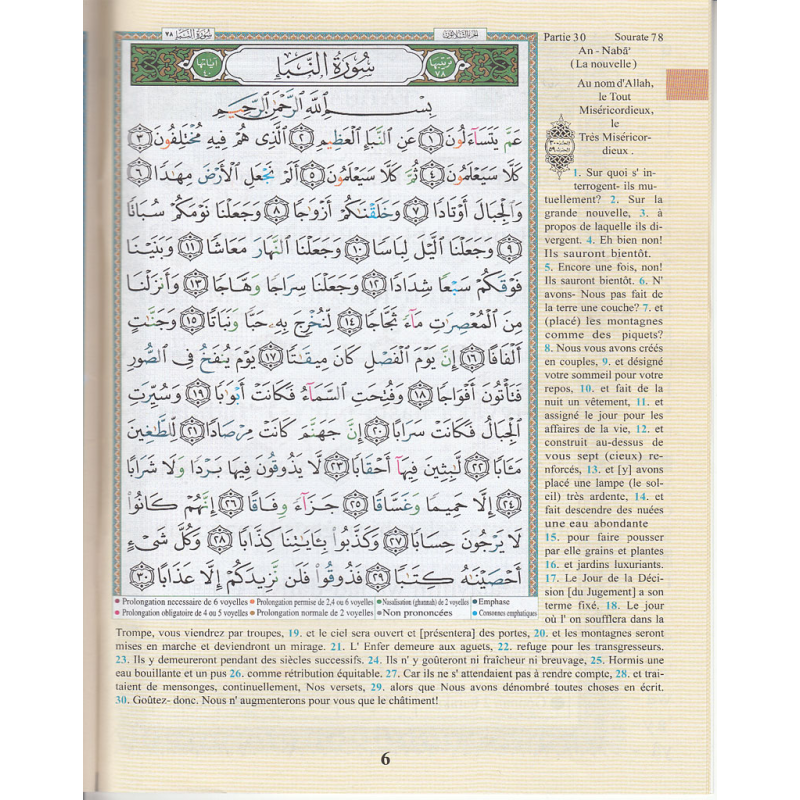 سُورَةُ النَّبَإِ ٧٨
الجزء الثلاثون
ترتيبها ٧٨
سُورَةُ النَّبَإِ
آياتها ٤٠
بِسْمِ اللَّهِ الرَّحْمَٰنِ الرَّحِيمِ
عَمَّ يَتَسَآءَلُونَ ١ عَنِ ٱلنَّبَإِ ٱلْعَظِيمِ ٢ ٱلَّذِى هُمْ فِيهِ مُخْتَلِفُونَ ٣
كَلَّا سَيَعْلَمُونَ ٤ ثُمَّ كَلَّا سَيَعْلَمُونَ ٥ أَلَمْ نَجْعَلِ ٱلْأَرْضَ مِهَٰدًا ٦
وَٱلْجِبَالَ أَوْتَادًا ٧ وَخَلَقْنَٰكُمْ أَزْوَٰجًا ٨ وَجَعَلْنَا نَوْمَكُمْ سُبَاتًا
٩ وَجَعَلْنَا ٱلَّيْلَ لِبَاسًا ١٠ وَجَعَلْنَا ٱلنَّهَارَ مَعَاشًا ١١ وَبَنَيْنَا
فَوْقَكُمْ سَبْعًا شِدَادًا ١٢ وَجَعَلْنَا سِرَاجًا وَهَّاجًا ١٣ وَأَنزَلْنَا
مِنَ ٱلْمُعْصِرَٰتِ مَآءً ثَجَّاجًا ١٤ لِّنُخْرِجَ بِهِۦ حَبًّا وَنَبَاتًا ١٥ وَجَنَّٰتٍ
أَلْفَافًا ١٦ إِنَّ يَوْمَ ٱلْفَصْلِ كَانَ مِيقَٰتًا ١٧ يَوْمَ يُنفَخُ فِى ٱلصُّورِ
فَتَأْتُونَ أَفْوَاجًا ١٨ وَفُتِحَتِ ٱلسَّمَآءُ فَكَانَتْ أَبْوَٰبًا ١٩ وَسُيِّرَتِ
ٱلْجِبَالُ فَكَانَتْ سَرَابًا ٢٠ إِنَّ جَهَنَّمَ كَانَتْ مِرْصَادًا ٢١ لِّلطَّٰغِينَ
مَـَٔابًا ٢٢ لَّٰبِثِينَ فِيهَآ أَحْقَابًا ٢٣ لَّا يَذُوقُونَ فِيهَا بَرْدًا وَلَا شَرَابًا
٢٤ إِلَّا حَمِيمًا وَغَسَّاقًا ٢٥ جَزَآءً وِفَاقًا ٢٦ إِنَّهُمْ كَانُوا۟
لَا يَرْجُونَ حِسَابًا ٢٧ وَكَذَّبُوا۟ بِـَٔايَٰتِنَا كِذَّابًا ٢٨ وَكُلَّ شَىْءٍ
أَحْصَيْنَٰهُ كِتَٰبًا ٢٩ فَذُوقُوا۟ فَلَن نَّزِيدَكُمْ إِلَّا عَذَابًا ٣٠
Prolongation necessaire de 6 voyelles Prolongation permise de 2,4 ou 6 voyelles Nasalisation (ghunnah) de 2 voyelles Emphase
Prolongation obligatoire de 4 ou 5 voyelles Prolongation normale de 2 voyelles Non prononcées Consonnes emphatiques
Partie 30 Sourate 78
An - Naba'
(La nouvelle)
Au nom d'Allah,
le Tout
Miséricordieux,
le
Trés Miséricor-
dieux .
1. Sur quoi s' in-
terrogent- ils mu-
tuellement? 2. Sur la
grande nouvelle, 3. à
propos de laquelle ils di-
vergent. 4. Eh bien non!
Ils sauront bientôt.
5. Encore une fois, non!
Ils sauront bientôt. 6. N'
avons- Nous pas fait de
la terre une couche? 7. et
(placé) les montagnes
comme des piquets?
8. Nous vous avons créés
en couples, 9. et désigné
votre sommeil pour votre
repos, 10. et fait de la
nuit un vêtement, 11. et
assigné le jour pour les
affaires de la vie, 12. et
construit au-dessus de
vous sept (cieux) re-
nforcés, 13. et [y] avons
placé une lampe (le sol-
eil) très ardente, 14. et
fait descendre des nuées
une eau abondante
15. pour faire pousser
par elle grains et plantes
16. et jardins luxuriants.
17. Le Jour de la Déci-
sion [du Jugement] a son
terme fixé. 18. Le jour
où l' on soufflera dans la
Trompe, vous viendrez par troupes, 19. et le ciel sera ouvert et [présentera] des portes, 20. et les montagnes seront
mises en marche et deviendront un mirage. 21. L' Enfer demeure aux aguets, 22. refuge pour les transgresseurs.
23. Ils y demeureront pendant des siècles successifs. 24. Ils n' y goûteront ni fraîcheur ni breuvage, 25. Hormis une
eau bouillante et un pus 26. comme rétribution équitable. 27. Car ils ne s' attendaient pas à rendre compte, 28. et trai-
taient de mensonges, continuellement, Nos versets, 29. alors que Nous avons dénombré toutes choses en écrit.
30. Goûtez- donc. Nous n' augmenterons pour vous que le châtiment!
6